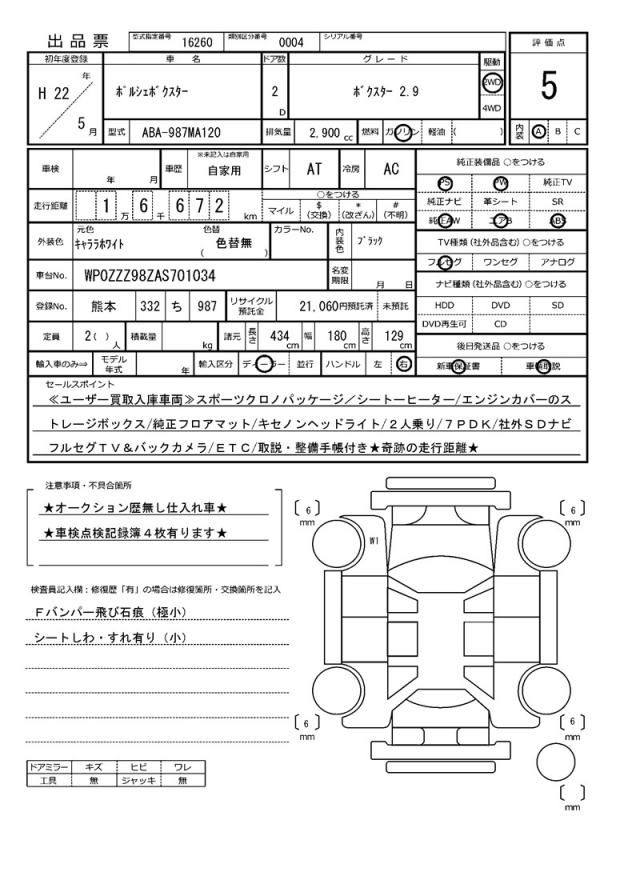 出品票 型式指定番号 16260 類別区分番号 0004 シリアル番号
初年度登録 車名 ドア数 グレード 駆動 評価点
H 22 年 5 月 ﾎﾟﾙｼｪﾎﾞｸｽﾀｰ 2 D ﾎﾞｸｽﾀｰ 2.9 2WD 4WD 5
型式 ABA-987MA120 排気量 2,900 cc 燃料 ガソリン 軽油 ( ) 内装 A B C
車検 年 月 車歴 ※未記入は自家用 自家用 シフト AT 冷房 AC 純正装備品 ○をつける
PS PW 純正TV
走行距離 1 万 6 千 6 7 2 km ○をつける 純正ナビ 革シート SR
マイル $ (交換) * (改ざん) # (不明) 純正AW エアB ABS
外装色 元色 ｷｬﾗﾗﾎﾜｲﾄ 色替 ( 色替無 ) カラーNo. 内装色 ﾌﾞﾗｯｸ TV種類 (社外品含む) ○をつける
フルセグ ワンセグ アナログ
車台No. WP0ZZZ98ZAS701034 名変期限 月 日 ナビ種類 (社外品含む) ○をつける
登録No. 熊本 332 ち 987 リサイクル預託金 21,060円預託済 未預託 HDD DVD SD
DVD再生可 CD
定員 2( ) 人 積載量 kg 諸元 長さ 434 cm 幅 180 cm 高さ 129 cm 後日発送品 ○をつける
輸入車のみ⇒ モデル年式 年 輸入区分 ディーラー 並行 ハンドル 左 右 新車保証書 車輌取説
セールスポイント
≪ユーザー買取入庫車両≫スポーツクロノパッケージ/シートーヒーター/エンジンカバーのス
トレージボックス/純正フロアマット/キセノンヘッドライト/２人乗り/７ＰＤＫ/社外ＳＤナビ
フルセグＴＶ＆バックカメラ/ＥＴＣ/取説・整備手帳付き★奇跡の走行距離★
注意事項・不具合箇所
★オークション歴無し仕入れ車★
★車検点検記録簿４枚有ります★
検査員記入欄：修復歴「有」の場合は修復箇所・交換箇所を記入
Ｆバンパー飛び石痕（極小）
シートしわ・すれ有り（小）
ドアミラー キズ ヒビ ワレ
工具 無 ジャッキ 無
6 mm
6 mm
W1
6 mm
6 mm
mm